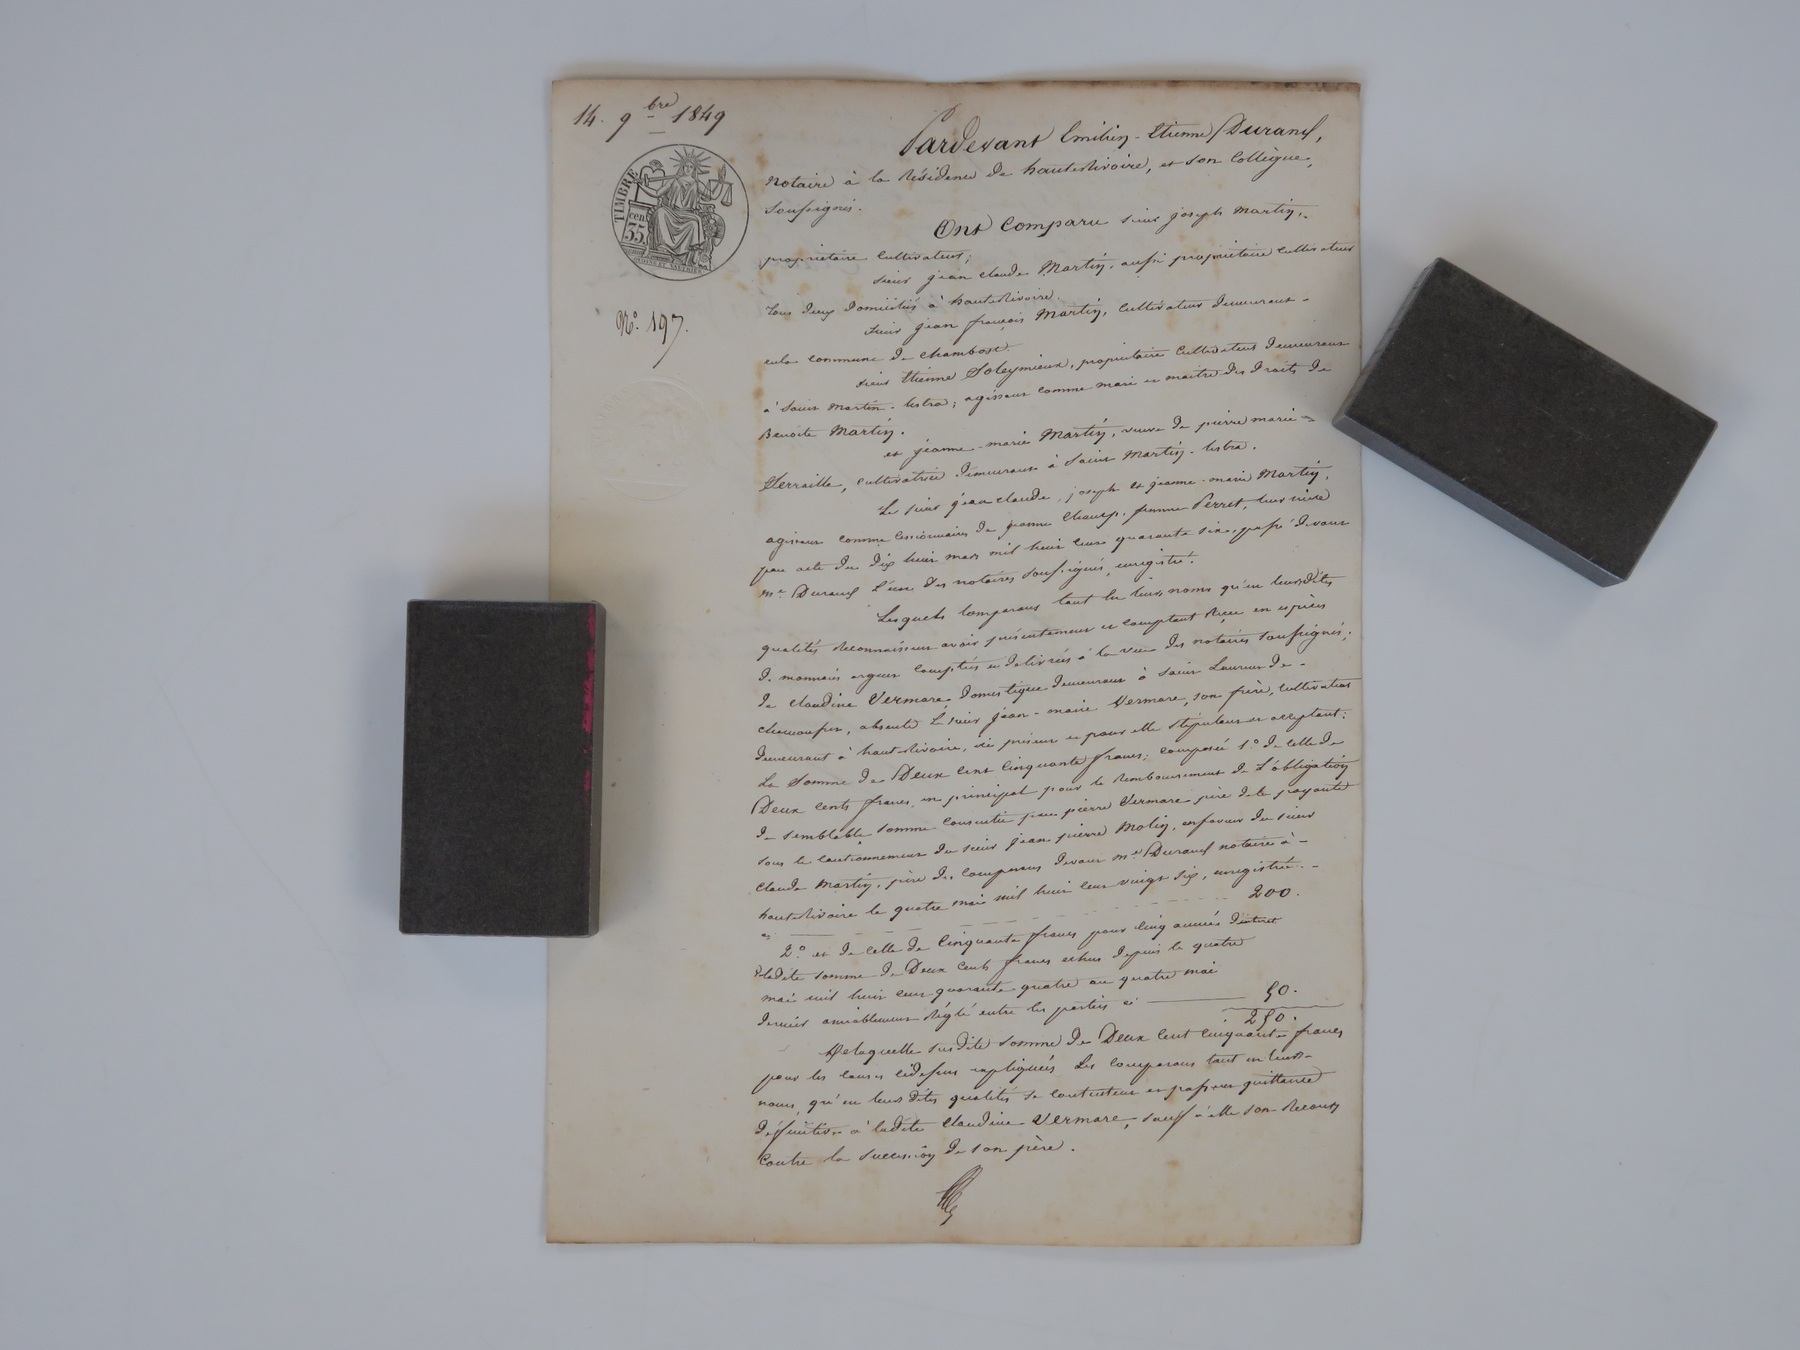 14. 9bre 1849
TIMBRE
cen
35
No. 197.
Pardevant Emilien-Etienne Durand,
notaire à la Résidence de hauterivoire, et son Collègue,
soussignés.
Ont Comparu sieur joseph Martin,
propriétaire Cultivateur;
sieur jean claude Martin, aussi propriétaire Cultivateur
tous deux domiciliés à hauterivoire.
sieur jean françois Martin, Cultivateur demeurant
en la commune de Chambost.
sieur Etienne Soleymieux, propriétaire Cultivateur demeurant
à Saint Martin-lestra; agissant comme mari et maître des droits de
Benoite Martin.
et jeanne-marie Martin, veuve de pierre marie
Serraille, cultivatrice demeurant à Saint Martin-lestra.
Le sieur jean claude, joseph et jeanne-marie Martin,
agissant comme cessionnaires de jeanne femme Perret, leur nièce
par acte du dix huit mars mil huit cent quarante six, passé devant
me Durand l'un des notaires soussignés, enregistré.
Lesquels comparans tant en leurs noms qu'en leursdites
qualités Reconnaissent avoir présentement et comptant Reçu en espèces
de monnaies argent comptées et délivrées à la vue des notaires soussignés,
de claudine Vermare, domestique demeurant à Saint Laurent de
chamousset, absente le sieur jean-marie Vermare, son frère, Cultivateur
demeurant à hauterivoire, ici présent et pour elle stipulant et acceptant:
La Somme de Deux Cent Cinquante francs; composée 1o. de celle de
Deux Cents francs, en principal pour le Remboursement de l'obligation
de semblable somme consentie par pierre Vermare père de la payante
sous le cautionnement du sieur jean pierre Molin, en faveur du sieur
Claude Martin, père des comparans devant me Durand notaire à
hauterivoire le quatre mai mil huit cent vingt six, enregistré.
ci 200.
2o et de celle de Cinquante francs pour cinq années d'interet
de ladite somme de Deux Cents francs echus depuis le quatre
mai mil huit cent quarante quatre au quatre mai
dernier amiablement Réglé entre les parties ci 50.
250.
De laquelle susdite somme de Deux Cent Cinquante francs
pour les causes cidessus expliquées Les comparans tant en leurs
noms, qu'en leursdites qualités se contentent et passent quittance
définitive à ladite Claudine Vermare, sauf à elle son Recours
Contre la succession de son père.